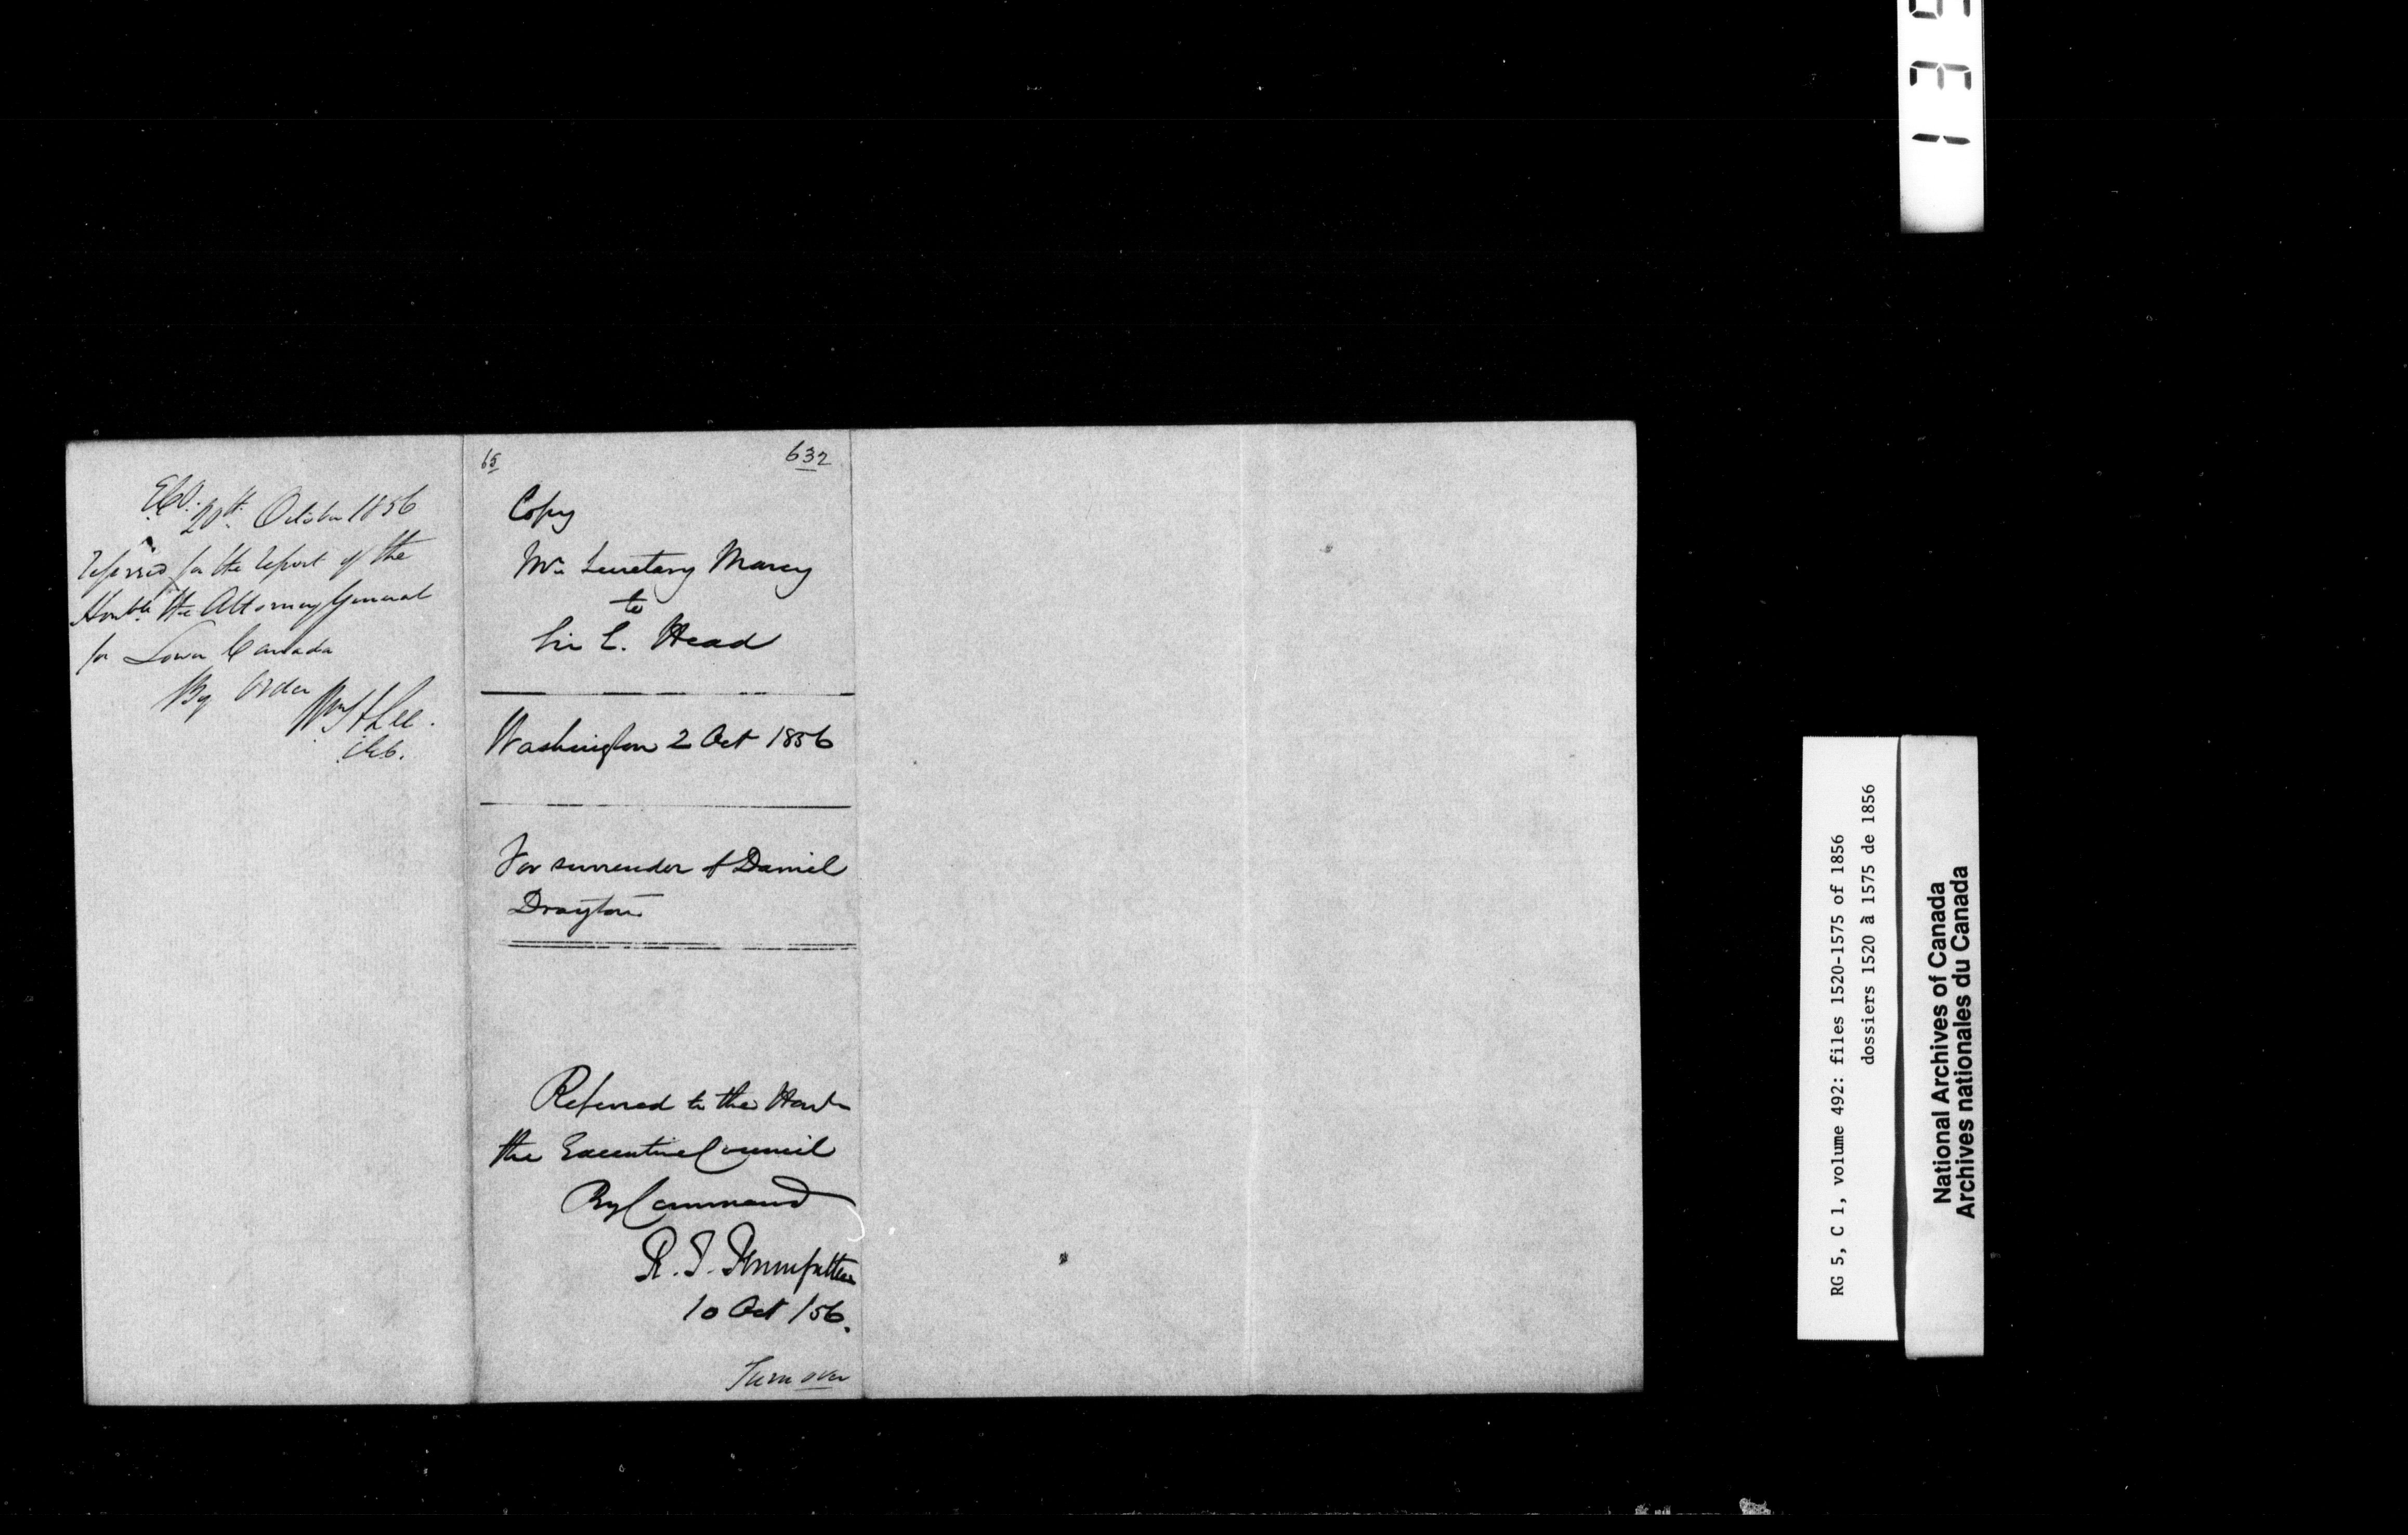 E.C.O. 20th October 1856
Referred for the report of the
Honble the Attorney General
for Lower Canada
By Order
Wm H Lee.
C.E.C.
65
632
Copy
Mr Secretary Marcy
to
Sir E. Head
Washington 2 Oct 1856
For surrender of Daniel
Drayton
Referred to the Honble
the Executive Council
By Command
R. T. Pennefather
10 Oct /56.
Turn over
135
RG 5, C 1, volume 492: files 1520-1575 of 1856
dossiers 1520 à 1575 de 1856
National Archives of Canada
Archives nationales du Canada